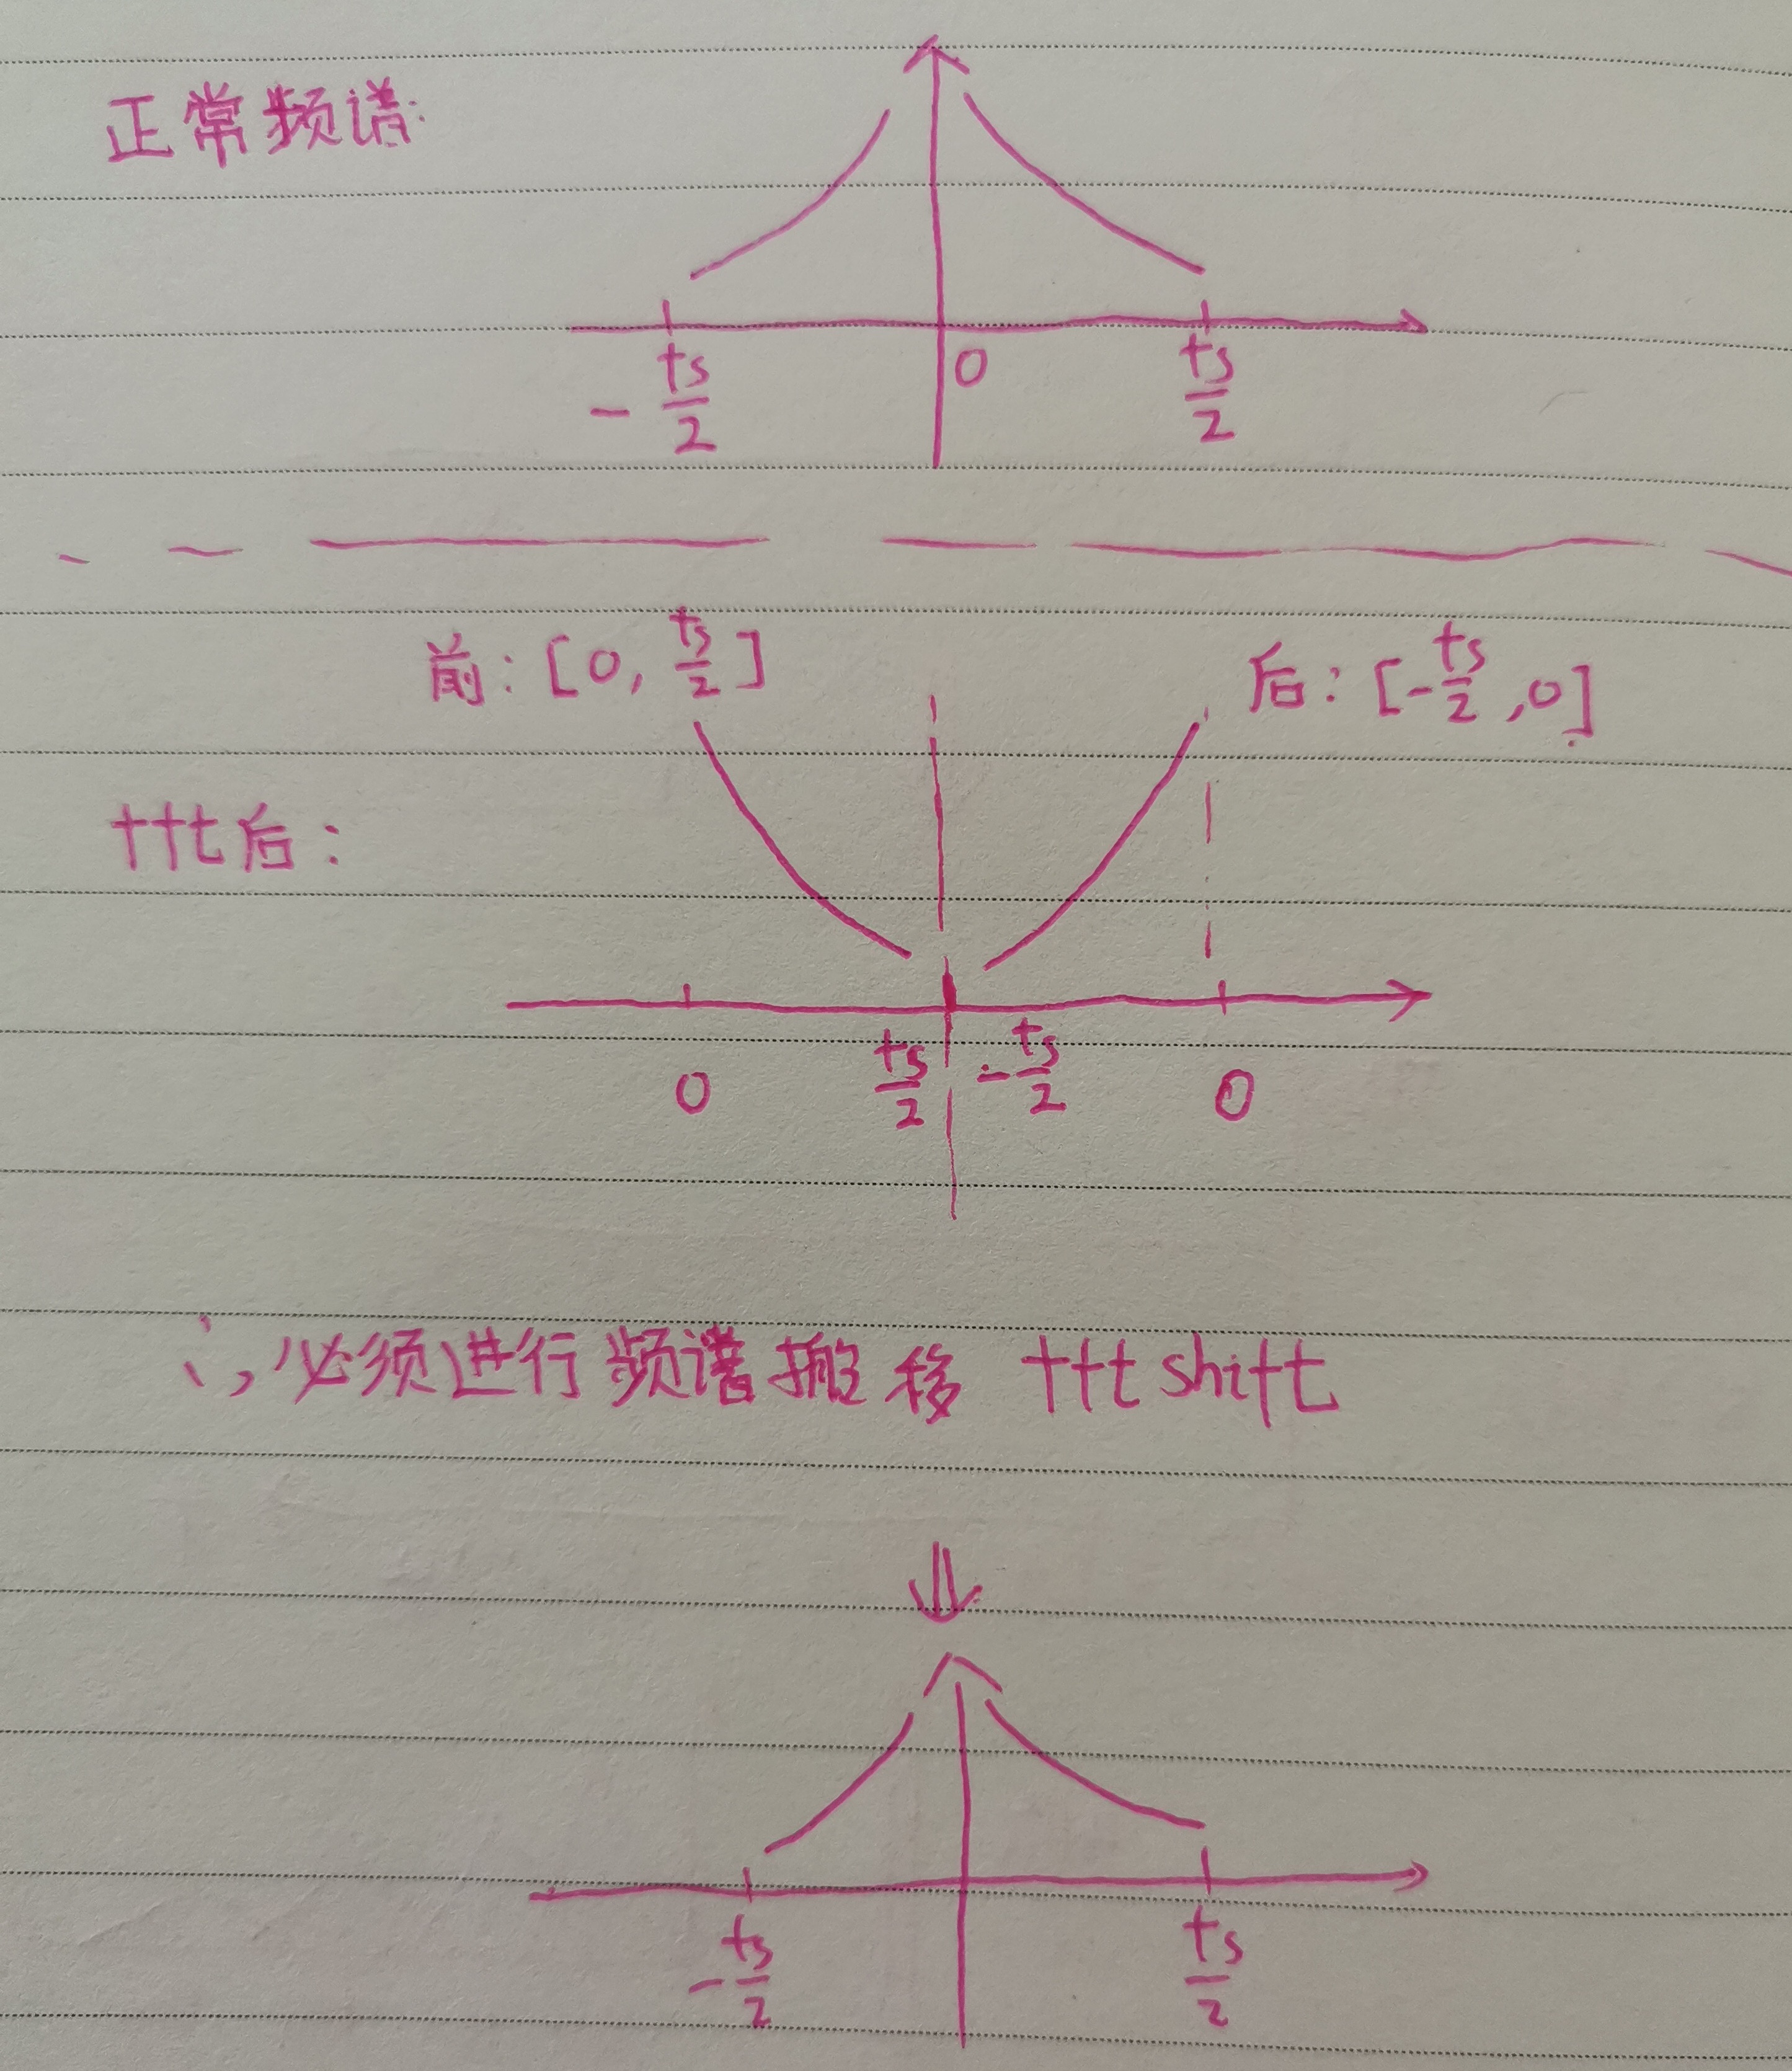 正常频谱:
-fs/2 0 fs/2
前: [0, fs/2] 后: [-fs/2, 0]
fft后:
0 fs/2 -fs/2 0
∴必须进行频谱搬移 fftshift
⇓
-fs/2 fs/2